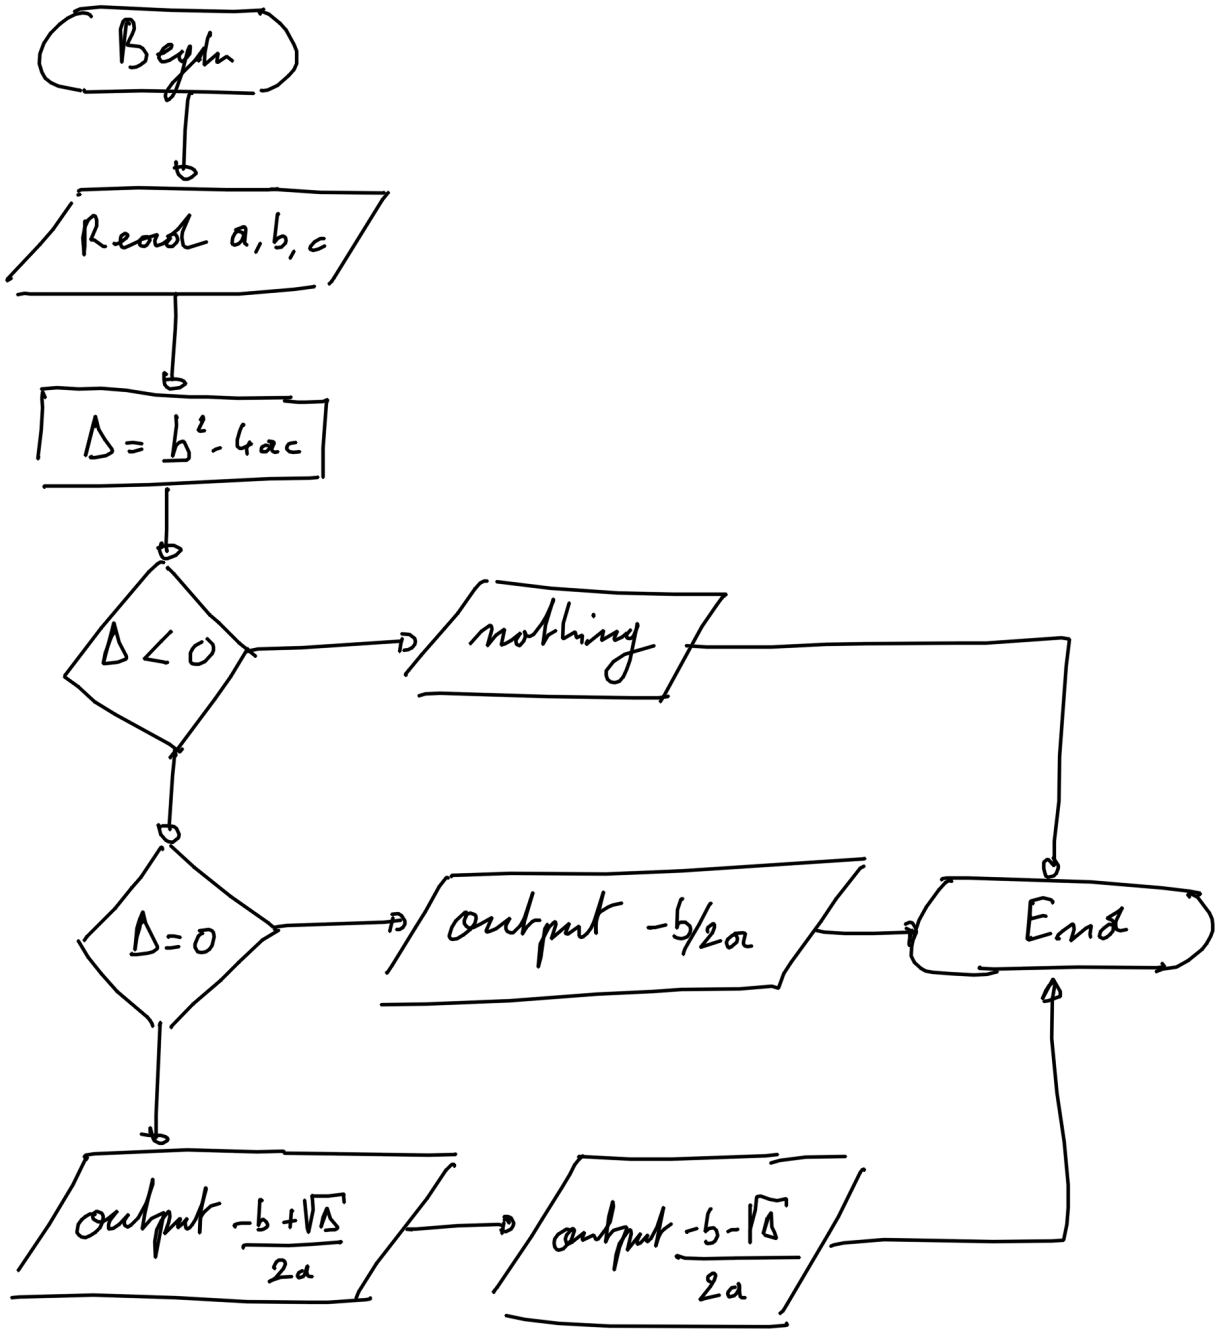 Begin
Read a, b, c
Δ = b² - 4ac
Δ < 0
nothing
Δ = 0
output -b/2a
End
output (-b + √Δ)/2a
output (-b - √Δ)/2a